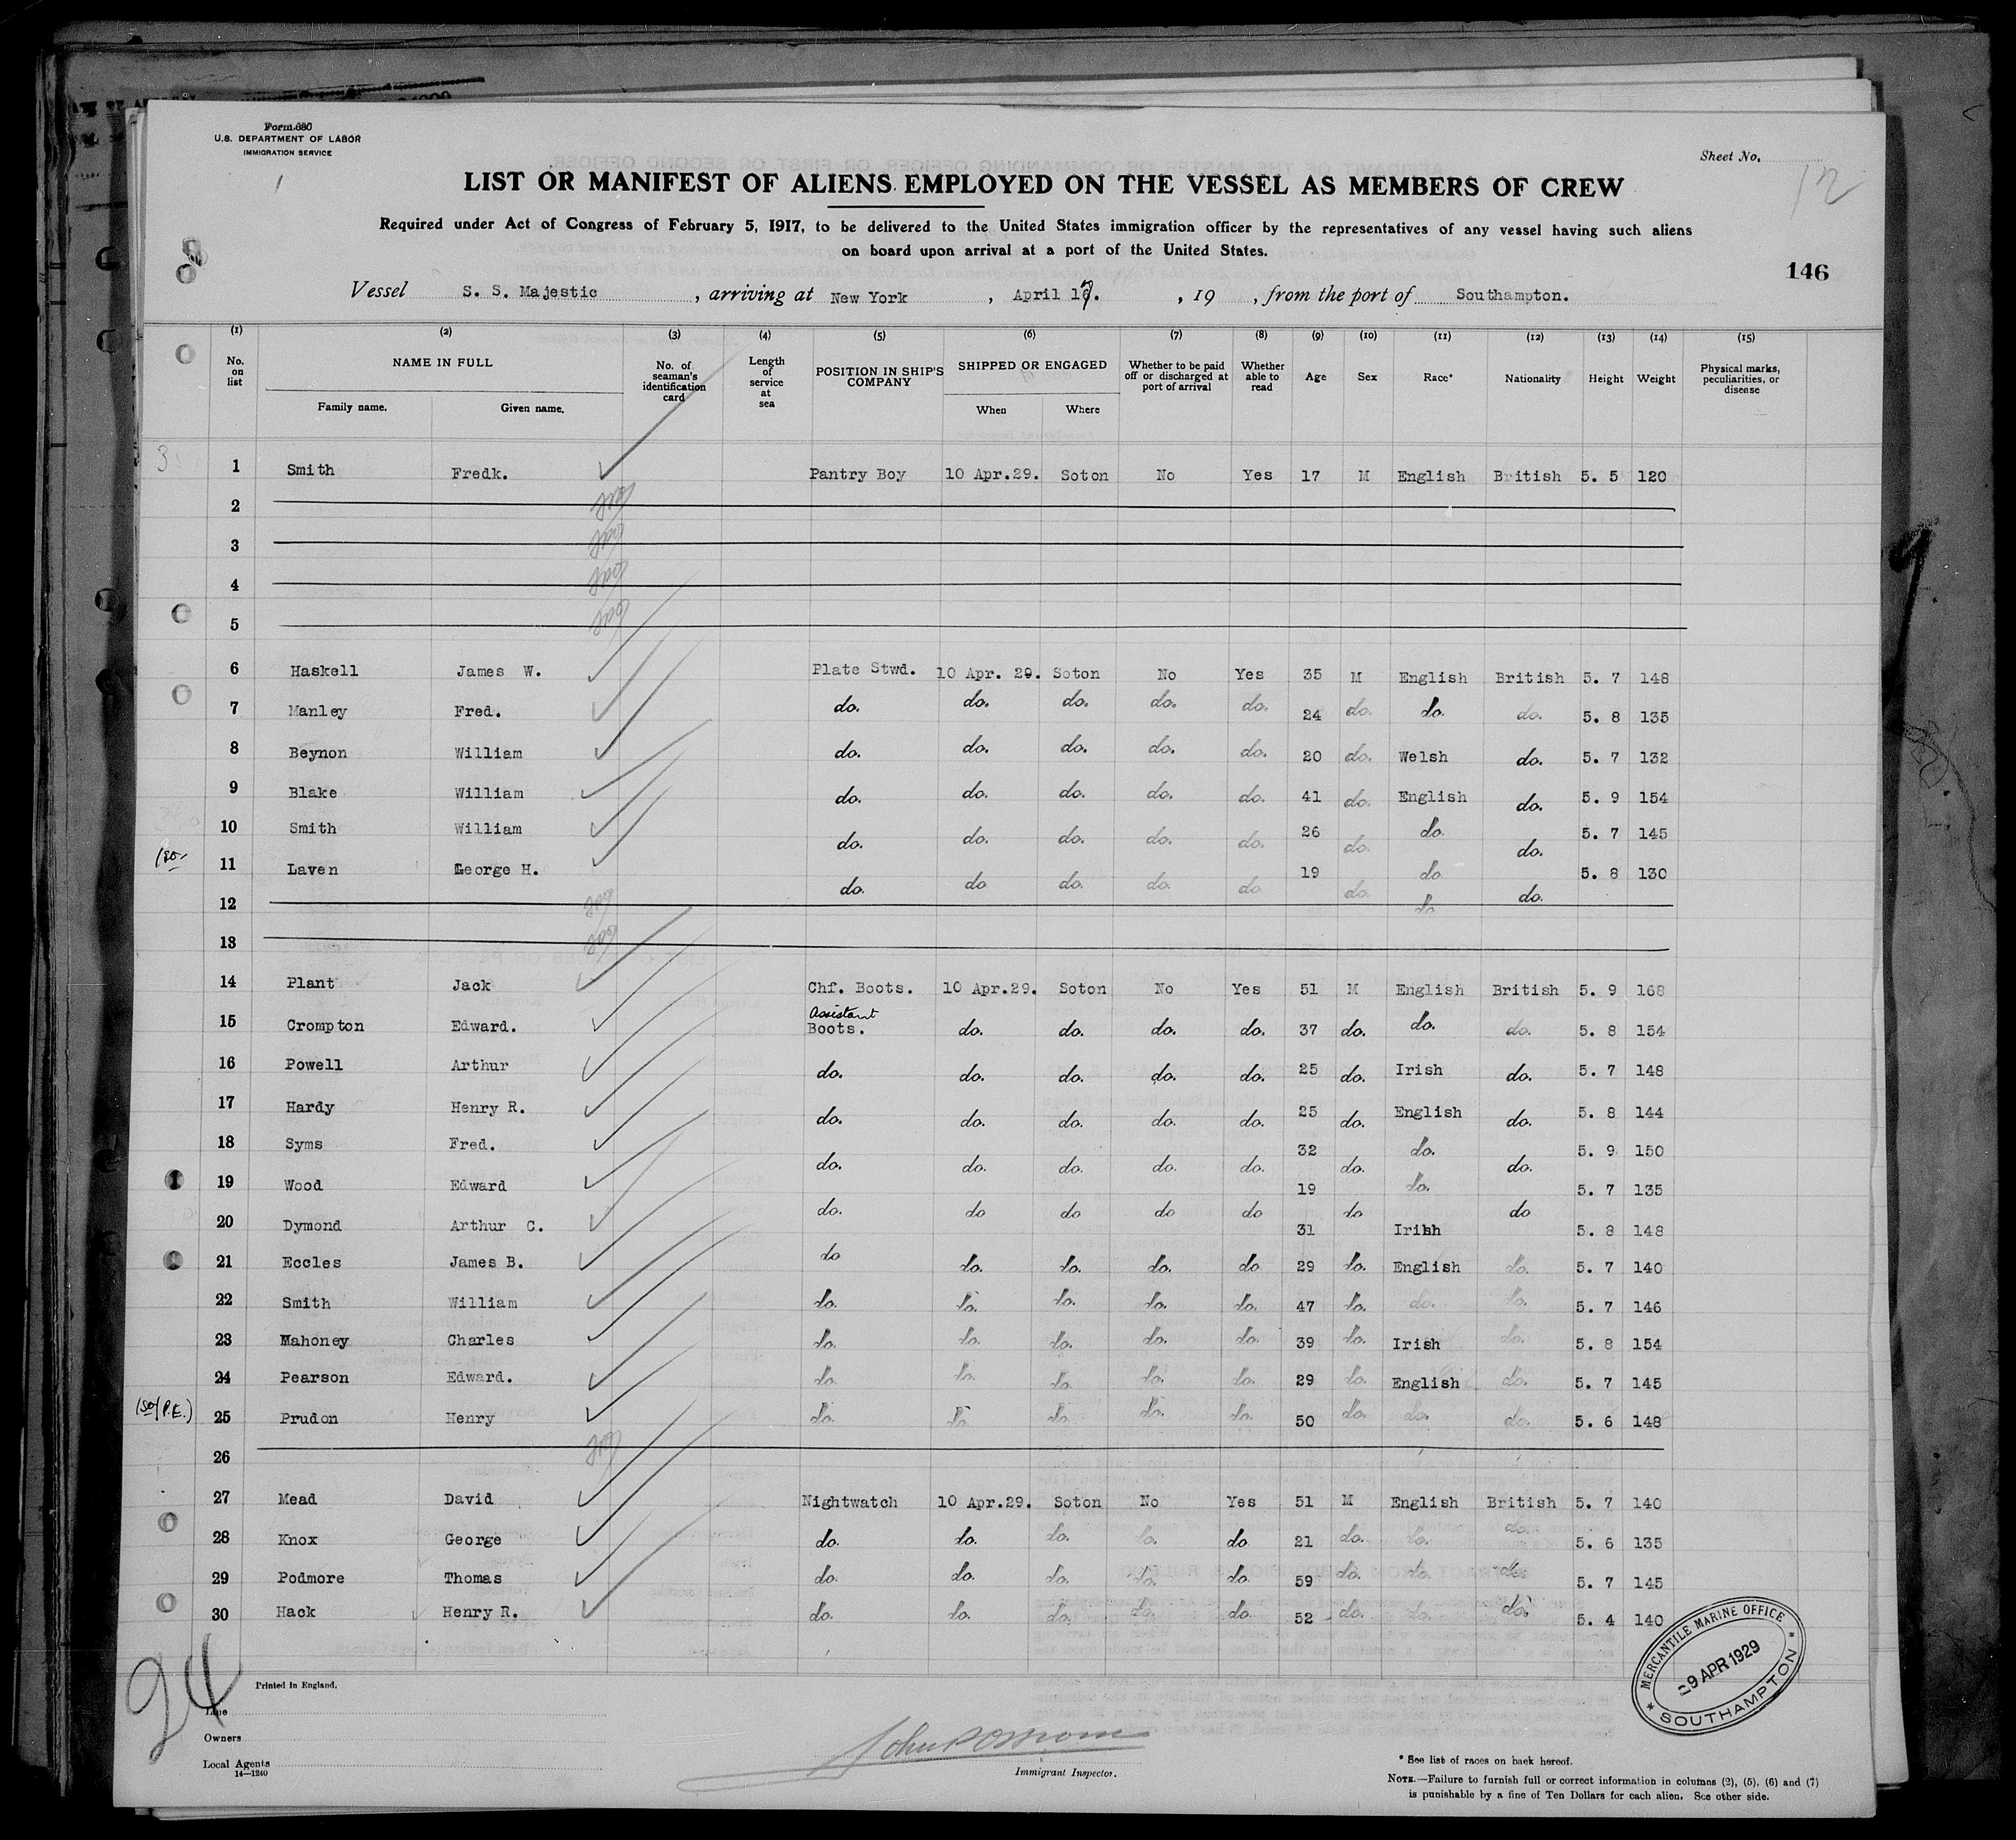 Form 680
U.S. DEPARTMENT OF LABOR
IMMIGRATION SERVICE
Sheet No. 12
LIST OR MANIFEST OF ALIENS EMPLOYED ON THE VESSEL AS MEMBERS OF CREW
Required under Act of Congress of February 5, 1917, to be delivered to the United States immigration officer by the representatives of any vessel having such aliens
on board upon arrival at a port of the United States.
146
Vessel S. S. Majestic , arriving at New York , April 17. , 19 , from the port of Southampton.
(1) (2) (3) (4) (5) (6) (7) (8) (9) (10) (11) (12) (13) (14) (15)
No. on list NAME IN FULL Family name. Given name. No. of seaman's identification card Length of service at sea POSITION IN SHIP'S COMPANY SHIPPED OR ENGAGED When Where Whether to be paid off or discharged at port of arrival Whether able to read Age Sex Race* Nationality Height Weight Physical marks, peculiarities, or disease
3
1 Smith Fredk. Pantry Boy 10 Apr.29. Soton No Yes 17 M English British 5. 5 120
2
3
4
5
6 Haskell James W. Plate Stwd. 10 Apr. 29. Soton No Yes 35 M English British 5. 7 148
7 Manley Fred. do. do. do. do. do. 24 do. do. do. 5. 8 135
8 Beynon William do. do. do. do. do. 20 do. Welsh do. 5. 7 132
9 Blake William do. do. do. do. do. 41 do. English do. 5. 9 154
10 Smith William do. do. do. do. do. 26 do. do. do. 5. 7 145
11 Laven George H. do. do do. do. do 19 do. do do. 5. 8 130
12 do
13
14 Plant Jack Chf. Boots. 10 Apr.29. Soton No Yes 51 M English British 5. 9 168
15 Crompton Edward. Assistant Boots. do. do. do. do. 37 do. do. do. 5. 8 154
16 Powell Arthur do. do. do. do. do. 25 do. Irish do. 5. 7 148
17 Hardy Henry R. do. do. do. do. do. 25 do. English do. 5. 8 144
18 Syms Fred. do. do. do. do. do. 32 do. do. do. 5. 9 150
19 Wood Edward do. do do do do 19 do do. do 5. 7 135
20 Dymond Arthur C. do 31 Irish 5. 8 148
21 Eccles James B. do. do. do. do 29 do. English do. 5. 7 140
22 Smith William do. do. do. do. do. 47 do. do. do. 5. 7 146
23 Mahoney Charles do. do. do. do. do. 39 do. Irish do. 5. 8 154
24 Pearson Edward. do. do. do. do. do. 29 do. English do. 5. 7 145
25 Prudon Henry do. do. do. do. do. 50 do. do. do. 5. 6 148
26
27 Mead David Nightwatch 10 Apr.29. Soton No Yes 51 M English British 5. 7 140
28 Knox George do. do. do. do. do 21 do. do. do. 5. 6 135
29 Podmore Thomas do. do. do. do. do. 59 do. do. do. 5. 7 145
30 Hack Henry R. do. do. do. do. do. 52 do. do. do. 5. 4 140
24
MERCANTILE MARINE OFFICE
9 APR 1929
SOUTHAMPTON
Printed in England.
Line
Owners
Local Agents
14—1240
Immigrant Inspector.
* See list of races on back hereof.
NOTE.—Failure to furnish full or correct information in columns (2), (5), (6) and (7)
is punishable by a fine of Ten Dollars for each alien. See other side.